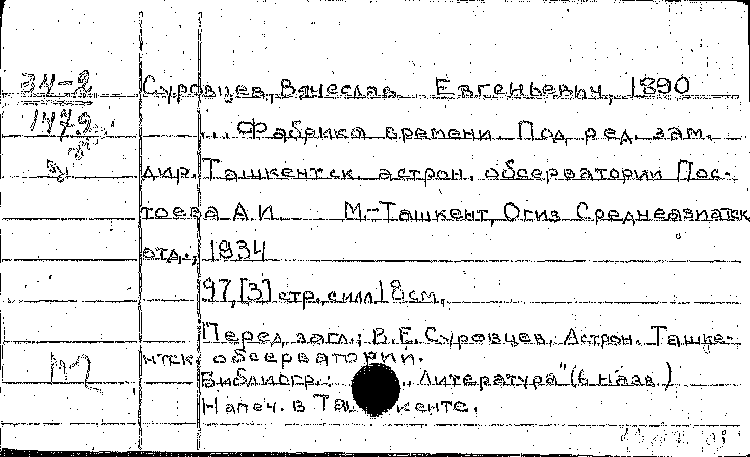 34-2
1479
Суровцев, Вячеслав Евгеньевич, 1890
... Фабрика времени. Под ред. зам.
дир. Ташкентск. астрон. обсерватории Пос-
тоева А.И. М.-Ташкент, Огиз Среднеазиатск
отд., 1934
97, [3] стр. с илл 18 см.
Перед загл.: В.Е. Суровцев, Астрон. Ташке-
нтск обсерватории.
Библиогр.: „Литература" (6 назв.)
Напеч. в Ташкенте.